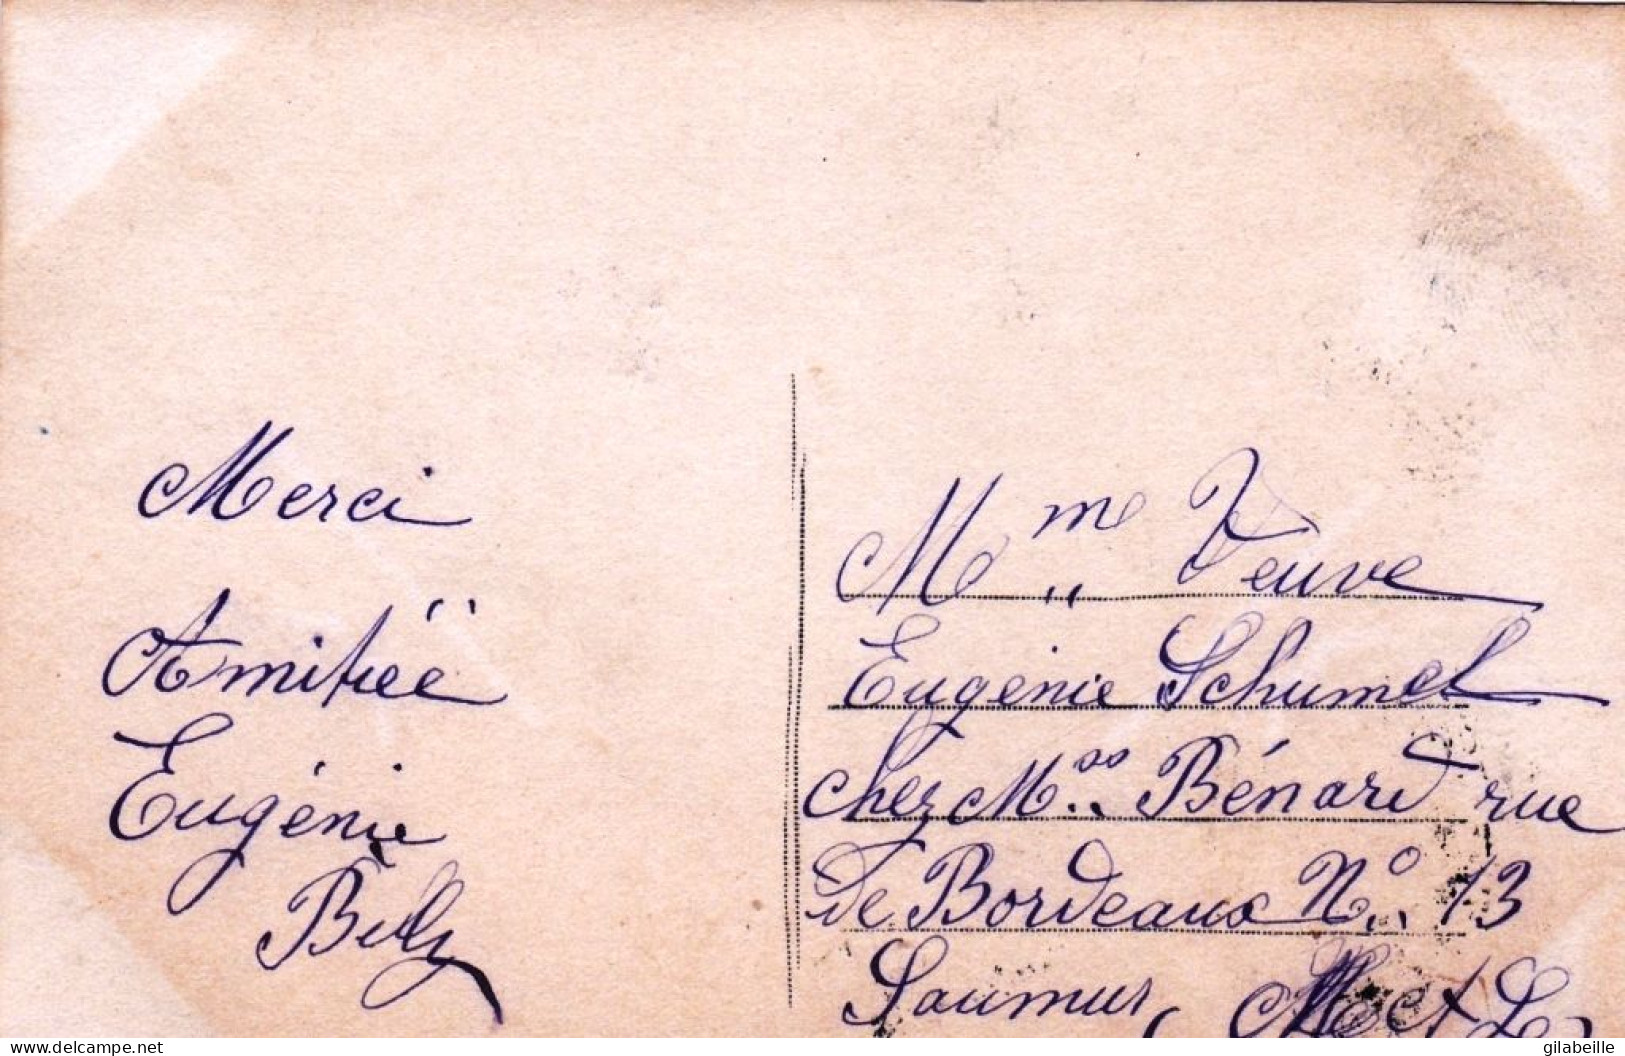 Merci
Amitiéé
Eugénie
Mme Veuve
Eugénie Schumel
chez Mss Bénard rue
de Bordeaux No 13
Saumur (M et L
delcampe.net
gilabeille